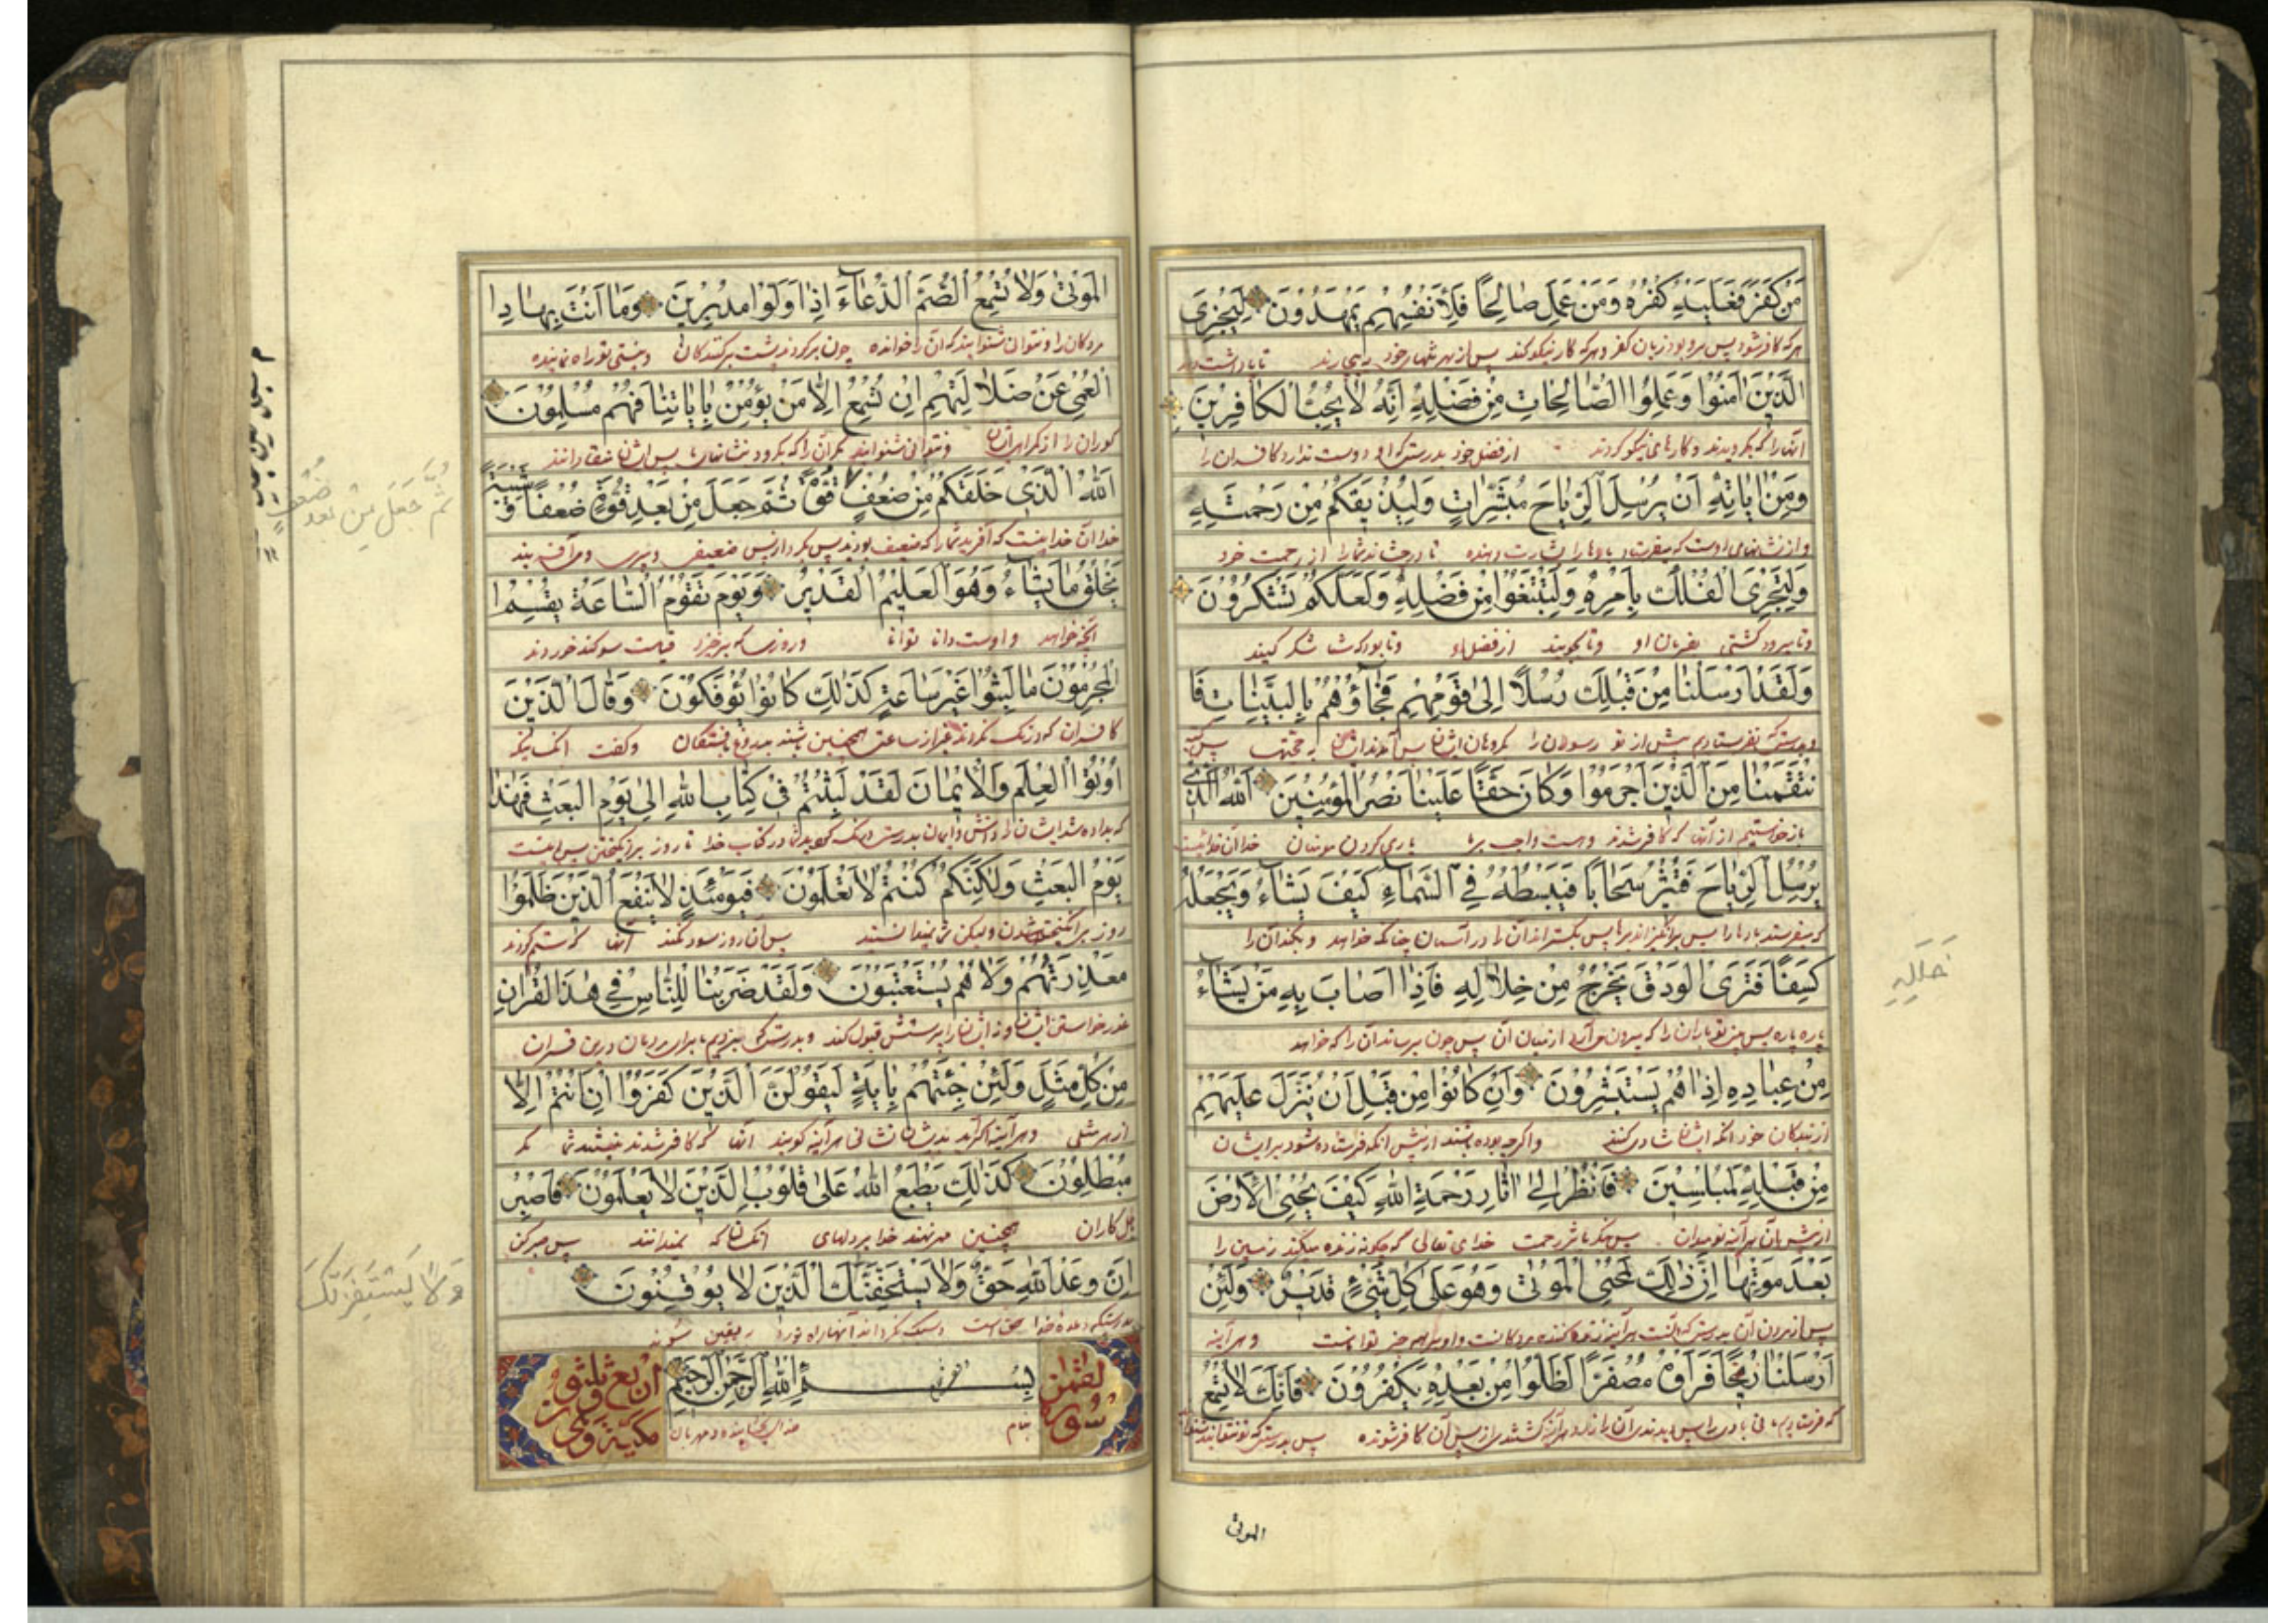 مَنْ كَفَرَ فَعَلَيْهِ كُفْرُهُ وَمَنْ عَمِلَ صَالِحًا فَلِأَنْفُسِهِمْ يَمْهَدُونَ لِيَجْزِيَ
هر که کافر شود پس برو بود زیان کفر و هر که کار نیکو کند پس از بهر تنهای خود تا پاداشت دهد
الَّذِينَ اٰمَنُوا وَعَمِلُوا الصَّالِحَاتِ مِنْ فَضْلِهِ اِنَّهُ لَا يُحِبُّ الْكَافِرِينَ
آنها را که بگرویدند و کارهای نیکو کردند از فضل خود بدرستی که او دوست ندارد کافران را
وَمِنْ اٰيَاتِهِ اَنْ يُرْسِلَ الرِّيَاحَ مُبَشِّرَاتٍ وَلِيُذِيقَكُمْ مِنْ رَحْمَتِهِ
و از نشانهای اوست که بفرستد بادها را بشارت دهنده تا بچشاند شما را از رحمت خود
وَلِتَجْرِيَ الْفُلْكُ بِاَمْرِهِ وَلِتَبْتَغُوا مِنْ فَضْلِهِ وَلَعَلَّكُمْ تَشْكُرُونَ
و تا برود کشتی بفرمان او و تا بجویید از فضل او و تا بود که شما شکر کنید
وَلَقَدْ اَرْسَلْنَا مِنْ قَبْلِكَ رُسُلًا اِلٰى قَوْمِهِمْ فَجَاؤُهُمْ بِالْبَيِّنَاتِ فَا
و بدرستی که بفرستادیم پیش از تو رسولان را بگروهان ایشان پس آمدند ایشان بحجتها پس
نْتَقَمْنَا مِنَ الَّذِينَ اَجْرَمُوا وَكَانَ حَقًّا عَلَيْنَا نَصْرُ الْمُؤْمِنِينَ اَللّٰهُ الَّذِي
از آنها که کافر شدند و هست واجب بر ما یاری کردن مومنان خدا آن خدائیست
يُرْسِلُ الرِّيَاحَ فَتُثِيرُ سَحَابًا فَيَبْسُطُهُ فِي السَّمَاءِ كَيْفَ يَشَاءُ وَيَجْعَلُهُ
که بفرستد بادها را پس برانگیزاند ابر را پس بگستراند آن را در آسمان چنانکه خواهد و بکند آن را
كِسَفًا فَتَرَى الْوَدْقَ يَخْرُجُ مِنْ خِلَالِهِ فَاِذَا اَصَابَ بِهِ مَنْ يَشَاءُ
پاره پاره پس بینی تو باران را که بیرون می آید از میان آن پس چون برساند آن را که خواهد
مِنْ عِبَادِهِ اِذَا هُمْ يَسْتَبْشِرُونَ وَاِنْ كَانُوا مِنْ قَبْلِ اَنْ يُنَزَّلَ عَلَيْهِمْ
از بندگان خود آنگه ایشان شادی کنند و اگر چه بوده باشند از پیش آنکه فرستاده شود بر ایشان
مِنْ قَبْلِهِ لَمُبْلِسِينَ فَانْظُرْ اِلٰى اٰثَارِ رَحْمَةِ اللّٰهِ كَيْفَ يُحْيِي الْاَرْضَ
از پیش آن هر آینه نومیدان پس بنگر باثر رحمت خدای تعالی که چگونه زنده میکند زمین را
بَعْدَ مَوْتِهَا اِنَّ ذٰلِكَ لَمُحْيِي الْمَوْتٰى وَهُوَ عَلٰى كُلِّ شَيْءٍ قَدِيرٌ وَلَئِنْ
پس از مردن آن بدرستی که آنست هر آینه زنده کننده مردگانست و او بر همه چیز تواناست و هر آینه
اَرْسَلْنَا رِيحًا فَرَاَوْهُ مُصْفَرًّا لَظَلُّوا مِنْ بَعْدِهِ يَكْفُرُونَ فَاِنَّكَ لَا تُسْمِعُ
که فرستادیم بادی را پس بدیدند آن را زرد هر آینه گشتند از پس آن کافر شونده پس بدرستی که تو نتوانی
الموتی
خلاله
الْمَوْتٰى وَلَا تُسْمِعُ الصُّمَّ الدُّعَاءَ اِذَا وَلَّوْا مُدْبِرِينَ وَمَا اَنْتَ بِهَادِ
مردگان را و نتوانی شنوانید کران را خوانده چون برگردند پشت برکنندگان و نیستی تو راه نماینده
الْعُمْيِ عَنْ ضَلَالَتِهِمْ اِنْ تُسْمِعُ اِلَّا مَنْ يُؤْمِنُ بِاٰيَاتِنَا فَهُمْ مُسْلِمُونَ
کوران را از گمراهی آن و نتوانی شنوانید مگر آن را که بگرود بنشانهای ما پس ایشان
اَللّٰهُ الَّذِي خَلَقَكُمْ مِنْ ضَعْفٍ قُوَّةً ثُمَّ جَعَلَ مِنْ بَعْدِ قُوَّةٍ ضَعْفًا وَ شَيْبَةً
خدا آن خدائیست که آفرید شما را که ضعیف بودند پس کرد از پس ضعیف و پیری و می آفریند
يَخْلُقُ مَا يَشَاءُ وَهُوَ الْعَلِيمُ الْقَدِيرُ وَيَوْمَ تَقُومُ السَّاعَةُ يُقْسِمُ ا
آنچه خواهد و اوست دانا توانا و روزی که برخیزد قیامت سوگند خوردند
لْمُجْرِمُونَ مَا لَبِثُوا غَيْرَ سَاعَةٍ كَذٰلِكَ كَانُوا يُؤْفَكُونَ وَقَالَ الَّذِينَ
کافران که درنگ نکردند غیر از ساعتی همچنین و گفت آنکسانیکه
اُوتُوا الْعِلْمَ وَالْاِيمَانَ لَقَدْ لَبِثْتُمْ فِي كِتَابِ اللّٰهِ اِلٰى يَوْمِ الْبَعْثِ فَهٰذَا
که بداده شد ایشان را دانش و ایمان بدرستی درنگ کردید در کتاب خدا تا روز برانگیختن پس اینست
يَوْمُ الْبَعْثِ وَلٰكِنَّكُمْ كُنْتُمْ لَا تَعْلَمُونَ فَيَوْمَئِذٍ لَا يَنْفَعُ الَّذِينَ ظَلَمُوا
روز برانگیخته شدن و لیکن شما نمیدانستید پس آن روز سود نکند آنها که ستم کردند
مَعْذِرَتُهُمْ وَلَا هُمْ يُسْتَعْتَبُونَ وَلَقَدْ ضَرَبْنَا لِلنَّاسِ فِي هٰذَا الْقُرْاٰنِ
عذر خواستن ایشان و نه ایشان را قبول کند و بدرستی که بزدیم ما برای مردمان درین قران
مِنْ كُلِّ مَثَلٍ وَلَئِنْ جِئْتَهُمْ بِاٰيَةٍ لَيَقُولَنَّ الَّذِينَ كَفَرُوا اِنْ اَنْتُمْ اِلَّا
از هر مثلی و هر آینه اگر بدیشان نشانی هر آینه گویند آنها که کافر شدند نیستید شما مگر
مُبْطِلُونَ كَذٰلِكَ يَطْبَعُ اللّٰهُ عَلٰى قُلُوبِ الَّذِينَ لَا يَعْلَمُونَ فَاصْبِرْ
باطل کاران همچنین مهر نهد خدا بر دلهای آنکسان که نمیدانند پس صبر کن
اِنَّ وَعْدَ اللّٰهِ حَقٌّ وَلَا يَسْتَخِفَّنَّكَ الَّذِينَ لَا يُوقِنُونَ
بدرستیکه وعده خدا حق است و سبک نگرداند آنها
سورة لقمن
بِسْمِ اللّٰهِ الرَّحْمٰنِ الرَّحِيمِ
بنام خدای بخشاینده و مهربان
اربع وثلثون
مكية وهي
ثُمَّ جَعَلَ مِنْ بَعْدِ ضُعْفٍ
وَلَا يَسْتَفِزَّنَّكَ